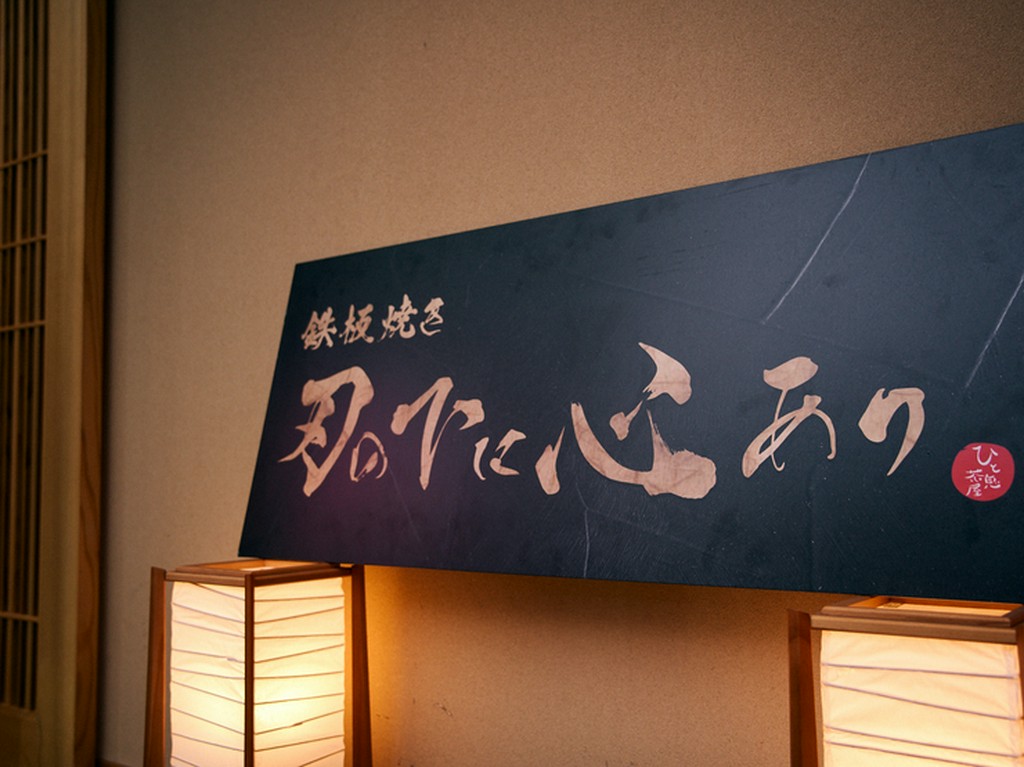 鉄板焼き
刃の下に心あり
ひと息
茶屋